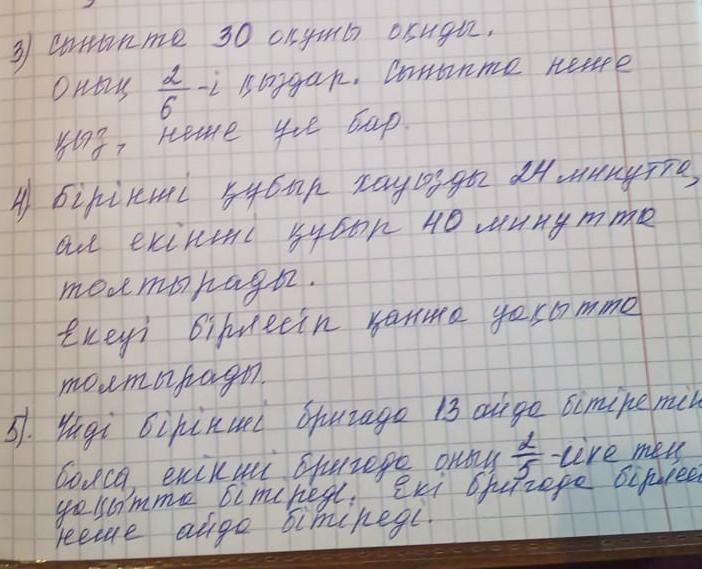 3) Сыныпта 30 оқушы оқиды.
Оның 2/6 -і қыздар. Сыныпта неше
қыз, неше ұл бар.
4) Бірінші құбыр хауызды 24 минутта,
ал екінші құбыр 40 минутта
толтырады.
Екеуі бірлесіп қанша уақытта
толтырады.
5). Үйді бірінші бригада 13 айда бітіретін
болса, екінші бригада оның 2/5 -іне тең
уақытта бітіреді. Екі бригада бірлесі
неше айда бітіреді.